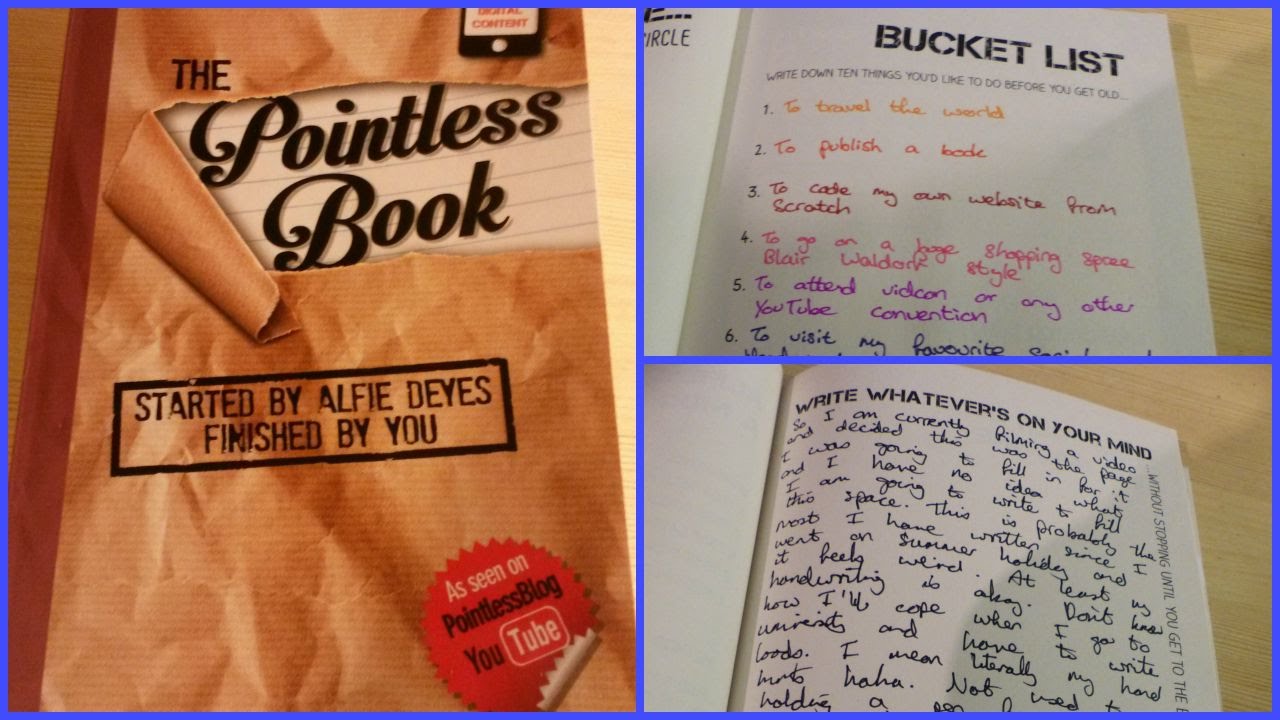 DIGITAL
CONTENT
THE
Pointless
Book
STARTED BY ALFIE DEYES
FINISHED BY YOU
As seen on
PointlessBlog
You Tube
E...
CIRCLE
BUCKET LIST
WRITE DOWN TEN THINGS YOU'D LIKE TO DO BEFORE YOU GET OLD...
1. To travel the world
2. To publish a book
3. To code my own website from
Scratch
4. To go on a huge shopping spree
Blair Waldorf style
5. To attend vidcon or any other
YouTube convention
6. To visit my favourite
WRITE WHATEVER'S ON YOUR MIND
...WITHOUT STOPPING UNTIL YOU GET TO THE E
So I am currently filming a video
and decided this was the page
I was going to fill in for it
and I have no idea what
I am going to write to fill
this space. This is probably the
most I have written since I
went on Summer holiday and
it feels weird. At least my
handwriting is okay. Don't know
how I'll cope when I go to
university and have to write
loads. I mean literally my hand
hurts haha. Not used to
holding a pen